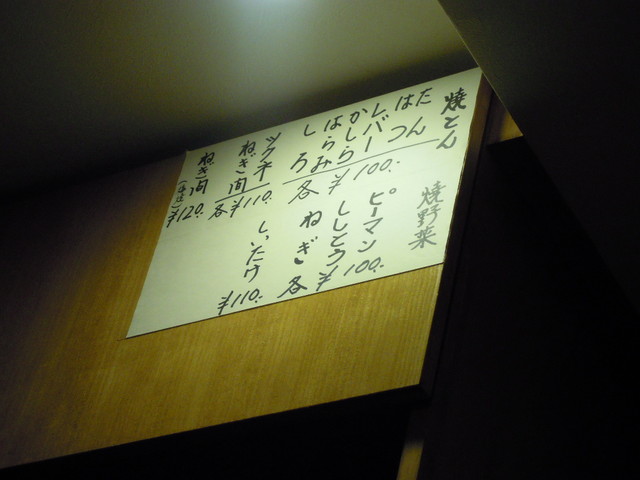 焼とん
たん
はつ
レバー
かしら
はらみ
しろ
各¥100.
ツク子
ねぎ間
各¥110.
ねぎ間
¥120.
焼野菜
ピーマン
ししとう
ねぎ
各¥100.
しいたけ
¥110.